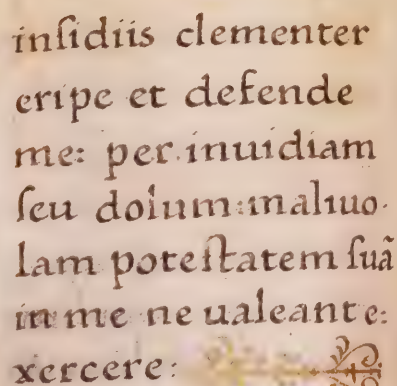 inſidiis clementer
eripe et defende
me: per inuidiam
ſeu dolum: maliuo-
lam poteſtatem ſuã
in me ne ualeant e:
xercere: